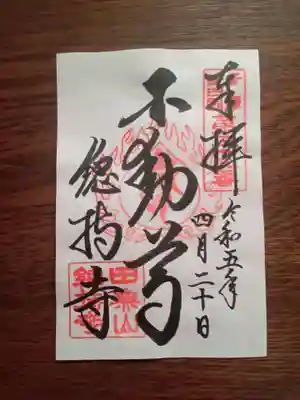 奉拝
令和五年
四月二十日
不動尊
總持寺